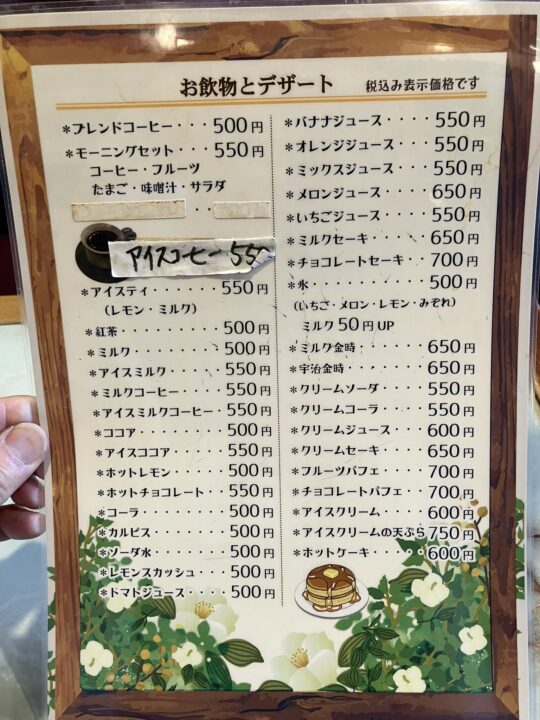 お飲物とデザート 税込み表示価格です
*ブレンドコーヒー・・・500円
*モーニングセット・・・・550円
コーヒー・フルーツ
たまご・味噌汁・サラダ
アイスコーヒー 550
*アイスティ・・・・・・550円
(レモン・ミルク)
*紅茶・・・・・・・・・500円
*ミルク・・・・・・・・500円
*アイスミルク・・・・・550円
*ミルクコーヒー・・・・550円
*アイスミルクコーヒー・550円
*ココア・・・・・・・・500円
*アイスココア・・・・・550円
*ホットレモン・・・・・500円
*ホットチョコレート・・550円
*コーラ・・・・・・・・500円
*カルピス・・・・・・・500円
*ソーダ水・・・・・・・500円
*レモンスカッシュ・・・500円
*トマトジュース・・・・500円
*バナナジュース・・・・550円
*オレンジジュース・・・550円
*ミックスジュース・・・550円
*メロンジュース・・・・650円
*いちごジュース・・・・550円
*ミルクセーキ・・・・・650円
*チョコレートセーキ・・700円
*氷・・・・・・・・・・500円
(いちご・メロン・レモン・みぞれ)
ミルク50円UP
*ミルク金時・・・・・・650円
*宇治金時・・・・・・・650円
*クリームソーダ・・・・550円
*クリームコーラ・・・・550円
*クリームジュース・・・600円
*クリームセーキ・・・・650円
*フルーツパフェ・・・・700円
*チョコレートパフェ・・700円
*アイスクリーム・・・・600円
*アイスクリームの天ぷら750円
*ホットケーキ・・・・・600円